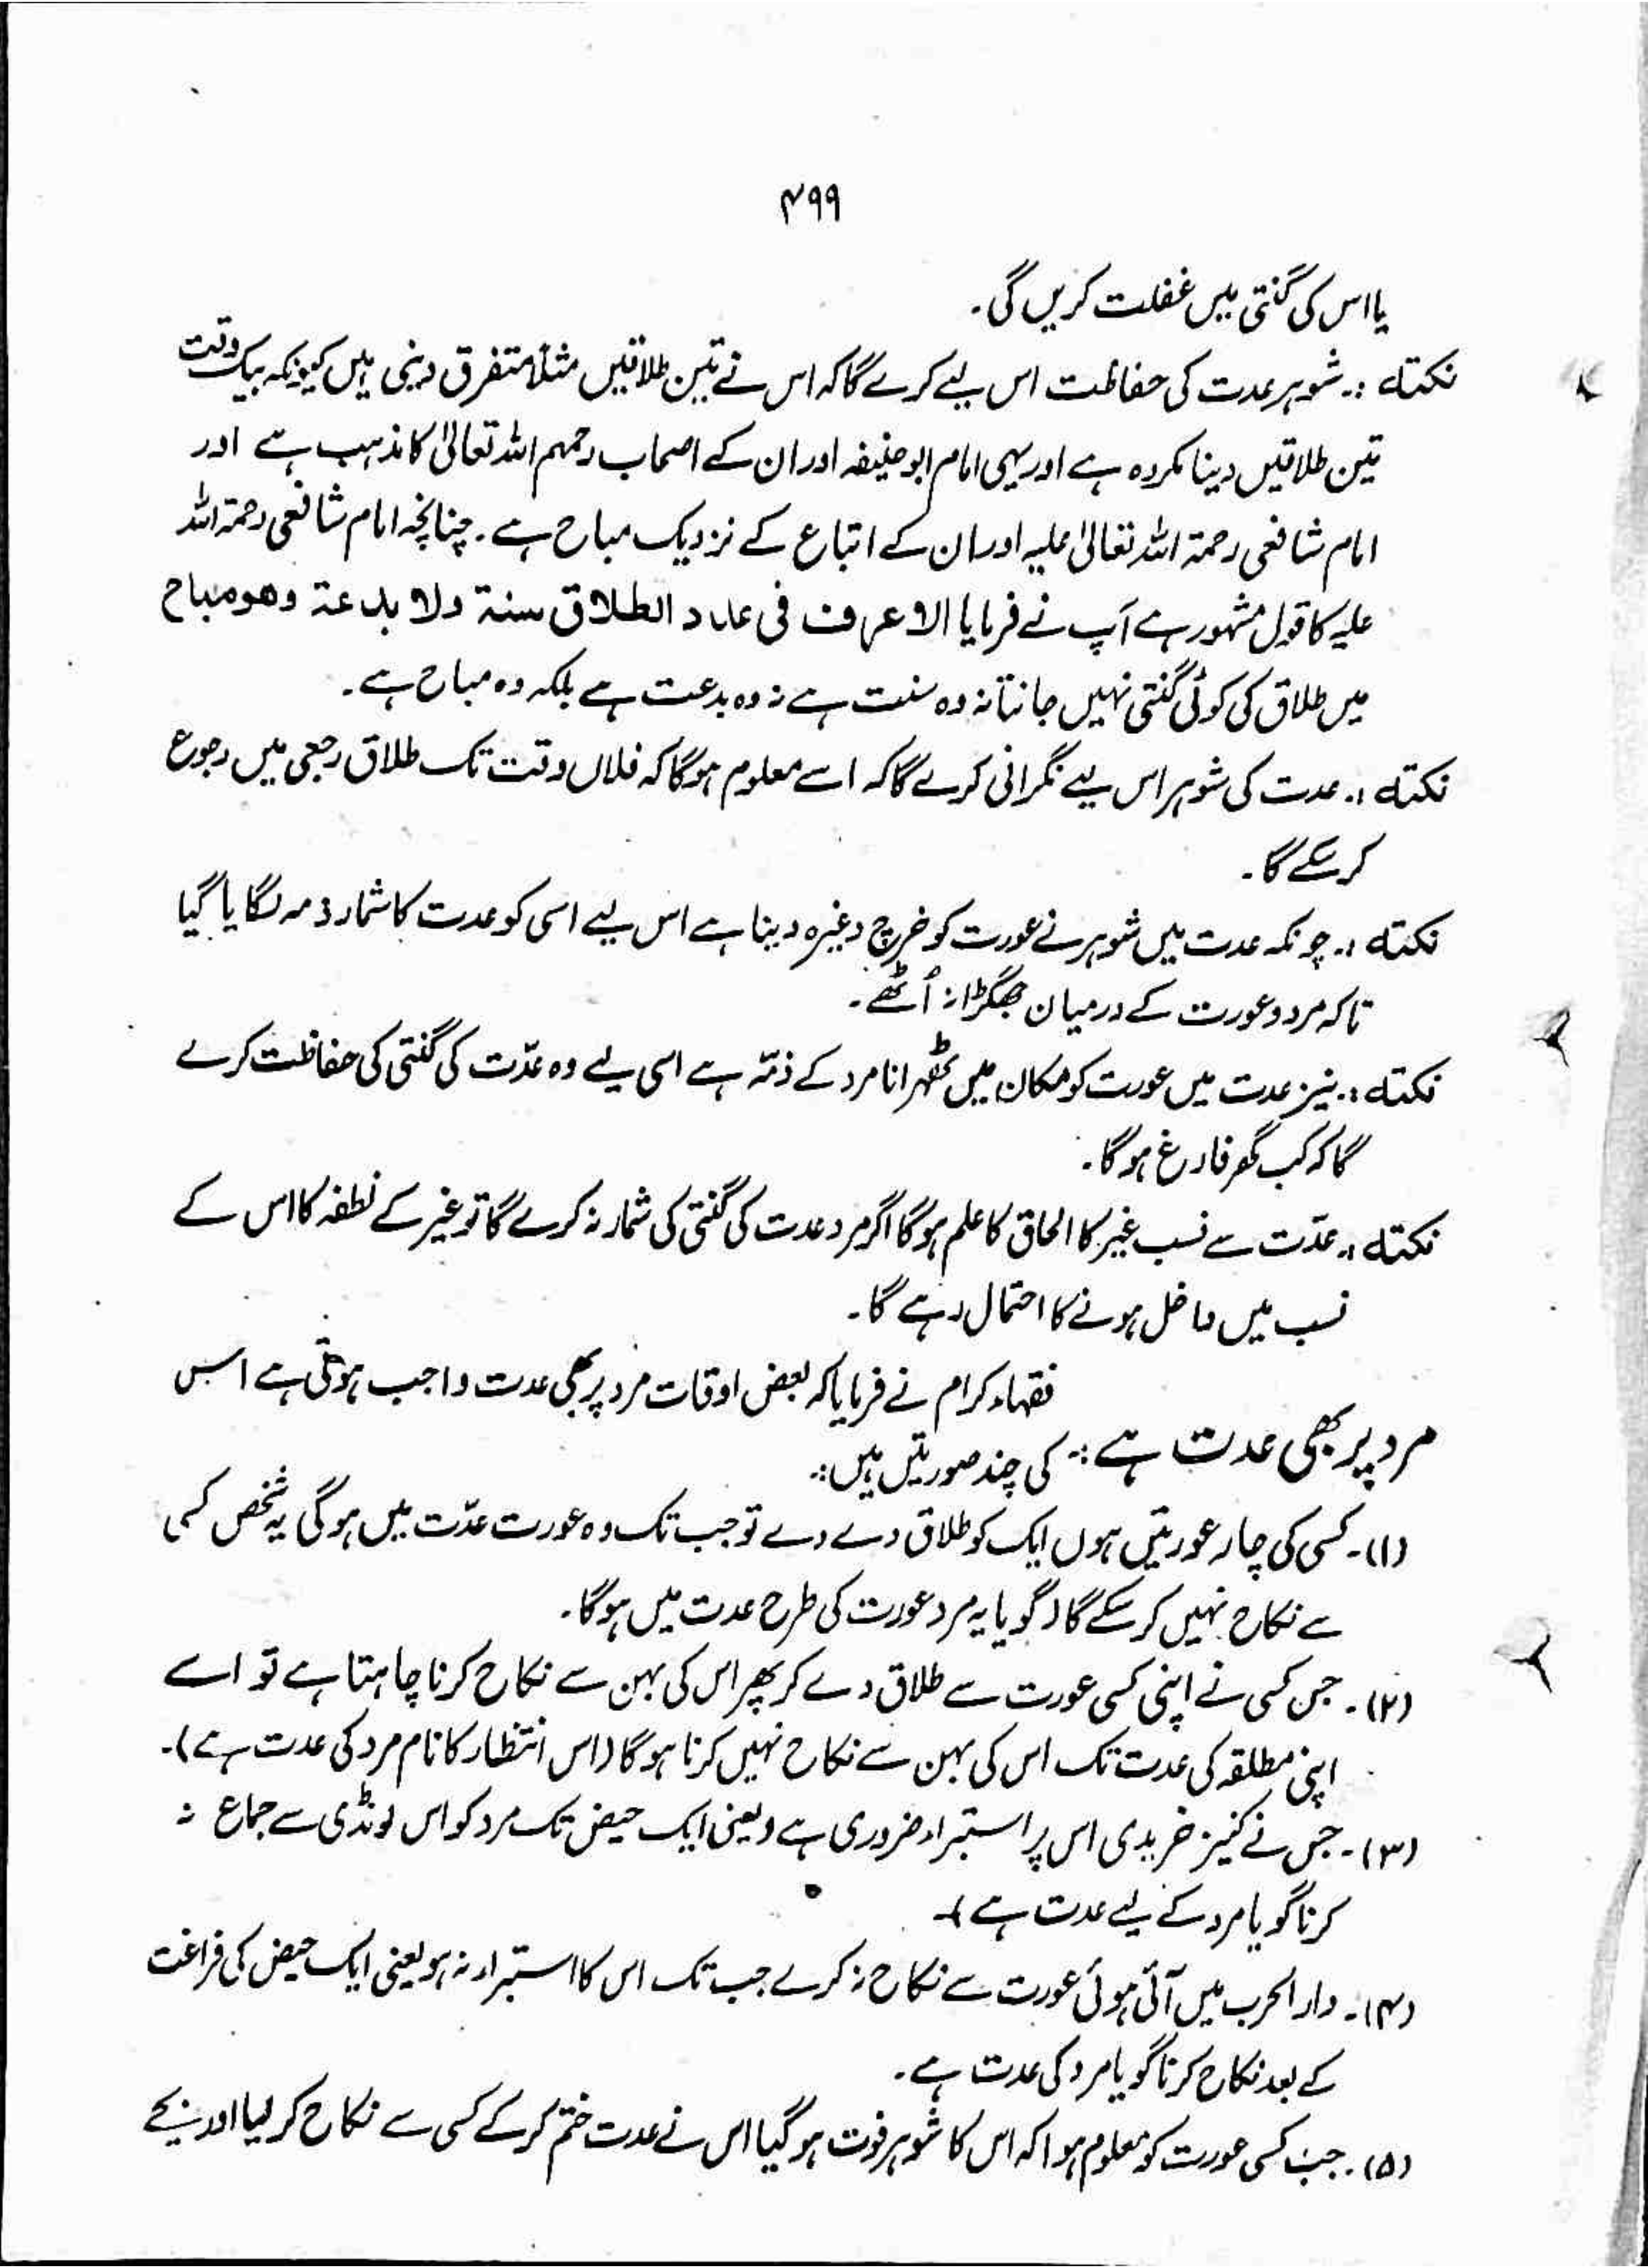 ۴۹۹
یا اس کی گنتی میں غفلت کریں گی۔
نکتہ :۔ شوہر عدت کی حفاظت اس لیے کرے گا کہ اس نے تین طلاقیں مثلاً متفرق دینی ہیں کیونکہ بیک وقت
تین طلاقیں دینا مکروہ ہے اور یہی امام ابوحنیفہ اور ان کے اصحاب رحمہم اللہ تعالیٰ کا مذہب ہے اور
امام شافعی رحمۃ اللہ تعالیٰ علیہ اور ان کے اتباع کے نزدیک مباح ہے۔ چنانچہ امام شافعی رحمۃ اللہ
علیہ کا قول مشہور ہے آپ نے فرمایا الا عرف فی عدد الطلاق سنۃ ولا بدعۃ وھو مباح
میں طلاق کی کوئی گنتی نہیں جانتا نہ وہ سنت ہے نہ وہ بدعت ہے بلکہ وہ مباح ہے۔
نکتہ :۔ عدت کی شوہر اس لیے نگرانی کرے گا کہ اسے معلوم ہوگا کہ فلاں وقت تک طلاق رجعی میں رجوع
کر سکے گا۔
نکتہ :۔ چونکہ عدت میں شوہر نے عورت کو خرچ وغیرہ دینا ہے اس لیے اسی کو عدت کا شمار ذمہ لگایا گیا
تاکہ مرد و عورت کے درمیان جھگڑا نہ اُٹھے۔
نکتہ :۔ نیز عدت میں عورت کو مکان میں ٹھہرانا مرد کے ذمّہ ہے اسی لیے وہ عدّت کی گنتی کی حفاظت کرے
گا کہ کب گھر فارغ ہوگا۔
نکتہ :۔ عدّت سے نسب غیر کا الحاق کا علم ہوگا اگر مرد عدت کی گنتی کی شمار نہ کرے گا تو غیر کے نطفہ کا اس کے
نسب میں داخل ہونے کا احتمال رہے گا۔
فقہاء کرام نے فرمایا کہ بعض اوقات مرد پر بھی عدت واجب ہوتی ہے اس
مرد پر بھی عدت ہے :۔ کی چند صورتیں ہیں :۔
(۱)۔ کسی کی چار عورتیں ہوں ایک کو طلاق دے دے تو جب تک وہ عورت عدّت میں ہوگی یہ شخص کسی
سے نکاح نہیں کر سکے گا (گویا یہ مرد عورت کی طرح عدت میں ہوگا۔
(۲)۔ جس کسی نے اپنی کسی عورت سے طلاق دے کر پھر اس کی بہن سے نکاح کرنا چاہتا ہے تو اسے
اپنی مطلقہ کی عدت تک اس کی بہن سے نکاح نہیں کرنا ہوگا (اس انتظار کا نام مرد کی عدت ہے)۔
(۳)۔ جس نے کنیز خریدی اس پر استبراء ضروری ہے (یعنی ایک حیض تک مرد کو اس لونڈی سے جماع نہ
کرنا گویا مرد کے لیے عدت ہے)۔
(۴)۔ دار الحرب میں آئی ہوئی عورت سے نکاح نہ کرے جب تک اس کا استبراء نہ ہو یعنی ایک حیض کی فراغت
کے بعد نکاح کرنا گویا مرد کی عدت ہے۔
(۵)۔ جب کسی عورت کو معلوم ہوا کہ اس کا شوہر فوت ہو گیا اس نے عدت ختم کر کے کسی سے نکاح کر لیا اور بچے